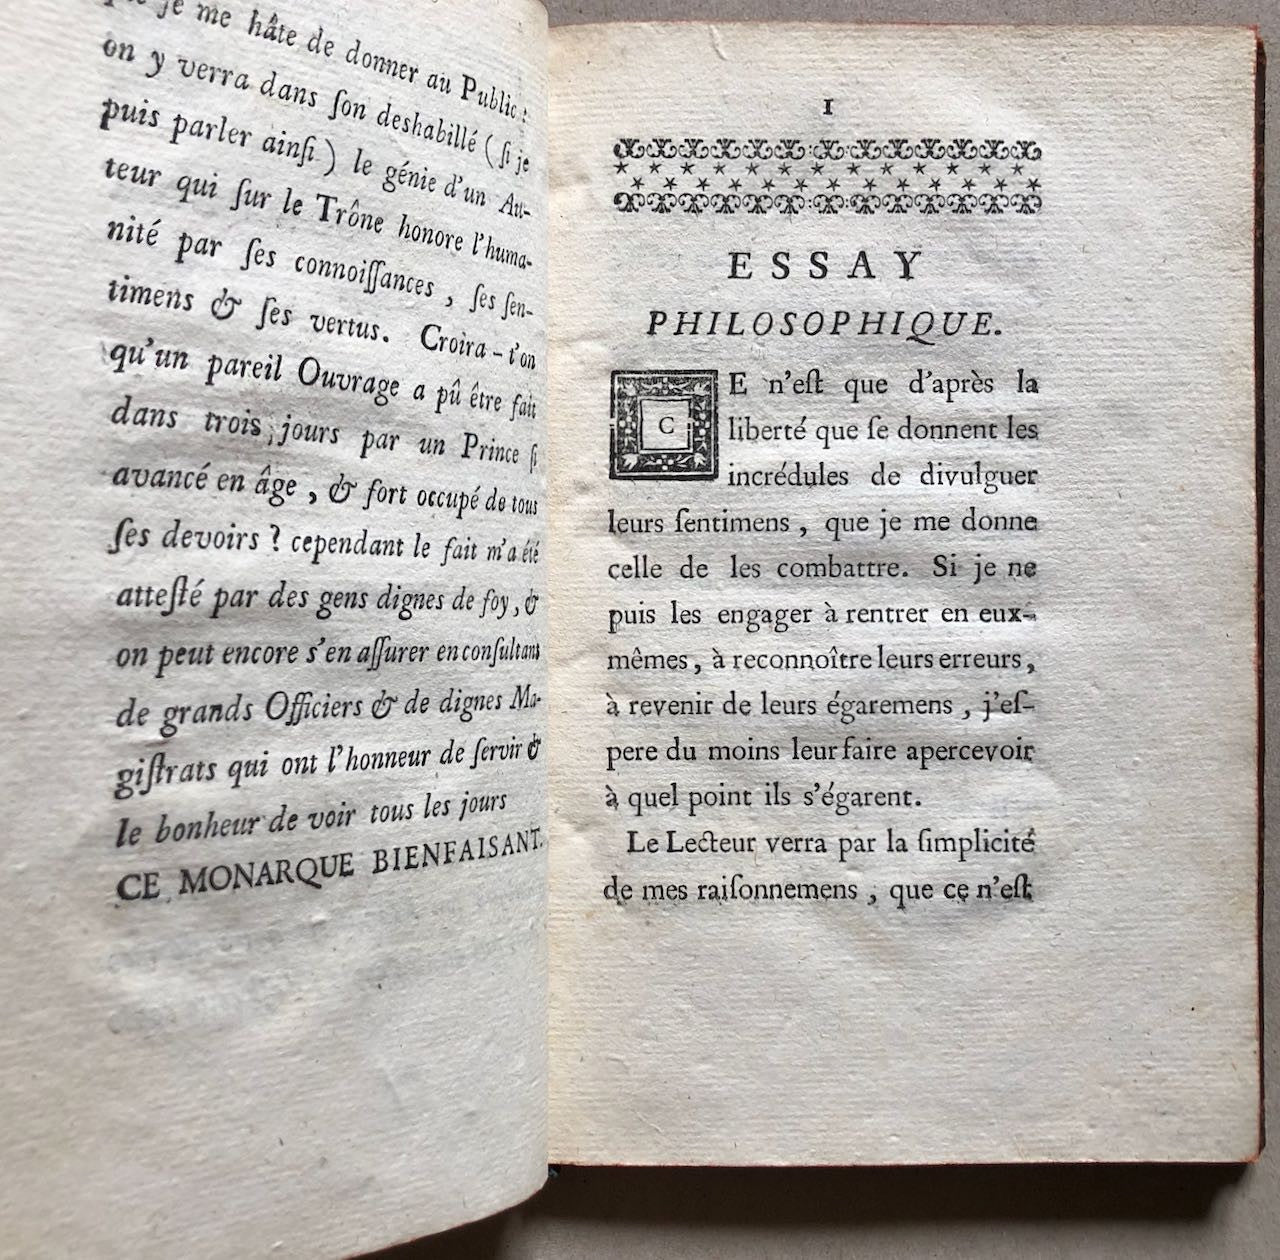 je me hâte de donner au Public :
on y verra dans ſon deshabillé ( ſi je
puis parler ainſi ) le génie d'un Au-
teur qui ſur le Trône honore l'huma-
nité par ſes connoiſſances , ſes ſen-
timens & ſes vertus. Croira-t'on
qu'un pareil Ouvrage a pû être fait
dans trois jours par un Prince ſi
avancé en âge , & fort occupé de tous
ſes devoirs ? cependant le fait m'a été
atteſté par des gens dignes de foy, &
on peut encore s'en aſſurer en conſultant
de grands Officiers & de dignes Ma-
giſtrats qui ont l'honneur de ſervir &
le bonheur de voir tous les jours
CE MONARQUE BIENFAISANT.
I
ESSAY
PHILOSOPHIQUE.
CE n'eſt que d'après la
liberté que ſe donnent les
incrédules de divulguer
leurs ſentimens , que je me donne
celle de les combattre. Si je ne
puis les engager à rentrer en eux-
mêmes , à reconnoître leurs erreurs ,
à revenir de leurs égaremens , j'eſ-
pere du moins leur faire apercevoir
à quel point ils s'égarent.
Le Lecteur verra par la ſimplicité
de mes raiſonnemens , que ce n'eſt